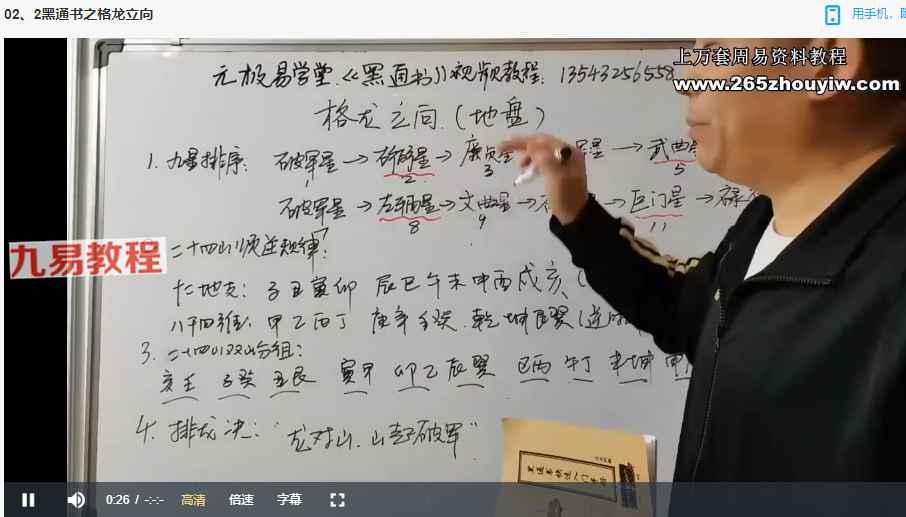 02、2黑通书之格龙立向
用手机
上万套周易资料教程
元极易学堂《黑通书》视频教程：13543256558
www.265zhouyiw.com
格龙之向（地盘）
1. 九星排序：破军星→右弼星→廉贞星 星→武曲
1 2 3 5
破军星→左辅星→文曲星→ →巨门星→禄
7 8 9 11
九易教程
二十四山顺逆规律：
十二地支：子丑寅卯 辰巳午未申酉戌亥（
八干四维：甲乙丙丁 庚辛壬癸 乾坤艮巽（逆
3. 二十四山双山分组：
亥壬 子癸 丑艮 寅甲 卯乙 辰巽 巳丙 午丁 未坤 申
4. 排龙决：“龙对山，山起破军”
0:26 / -:-:- 高清 倍速 字幕